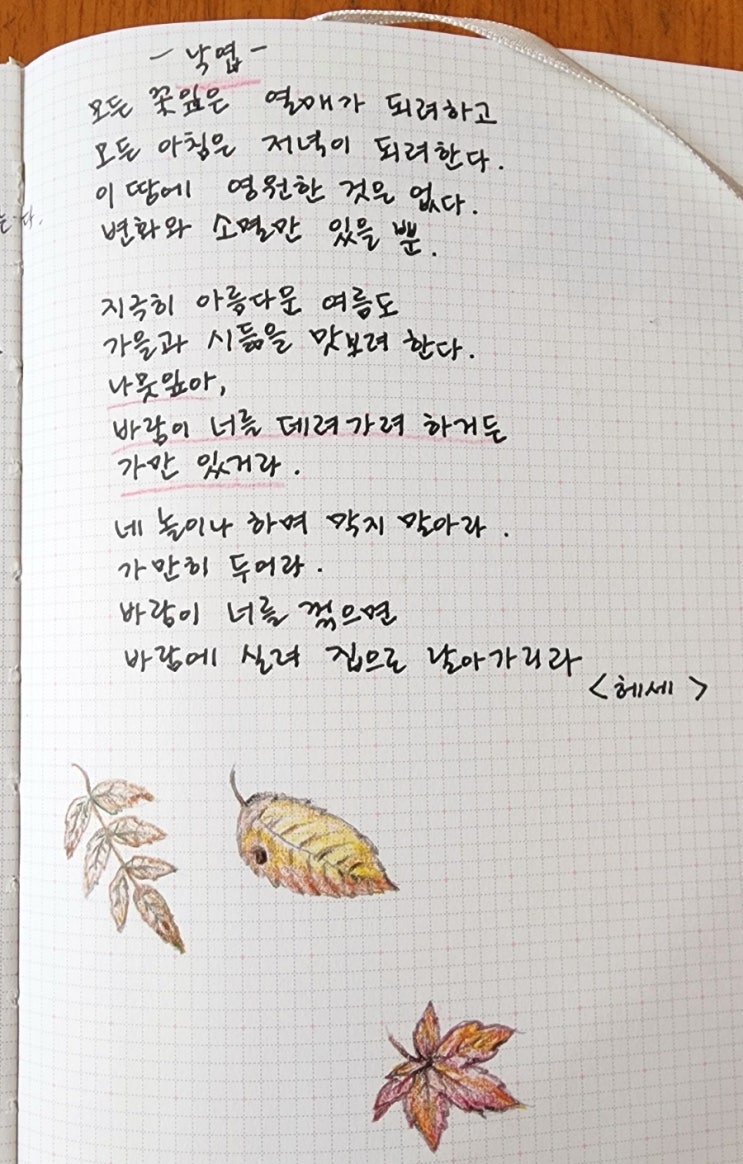 - 낙엽 -
모든 꽃잎은 열매가 되려하고
모든 아침은 저녁이 되려한다.
이 땅에 영원한 것은 없다.
변화와 소멸만 있을 뿐.
지극히 아름다운 여름도
가을과 시듦을 맛보려 한다.
나뭇잎아,
바람이 너를 데려가려 하거든
가만 있거라.
네 놀이나 하며 막지 말아라.
가만히 두어라.
바람이 너를 꺾으면
바람에 실려 집으로 날아가리라
<헤세>